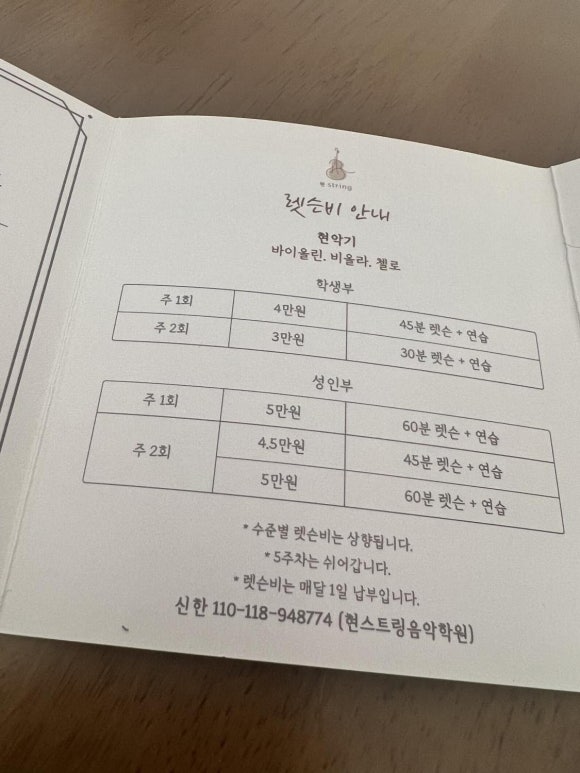 현 string
렛슨비 안내
현악기
바이올린. 비올라. 첼로
학생부
주 1회 4만원 45분 렛슨 + 연습
주 2회 3만원 30분 렛슨 + 연습
성인부
주 1회 5만원 60분 렛슨 + 연습
주 2회 4.5만원 45분 렛슨 + 연습
5만원 60분 렛슨 + 연습
* 수준별 렛슨비는 상향됩니다.
* 5주차는 쉬어갑니다.
* 렛슨비는 매달 1일 납부입니다.
신한 110-118-948774 (현스트링음악학원)